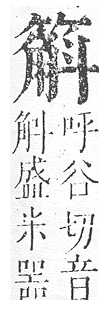 呼谷切音
斛盛米器